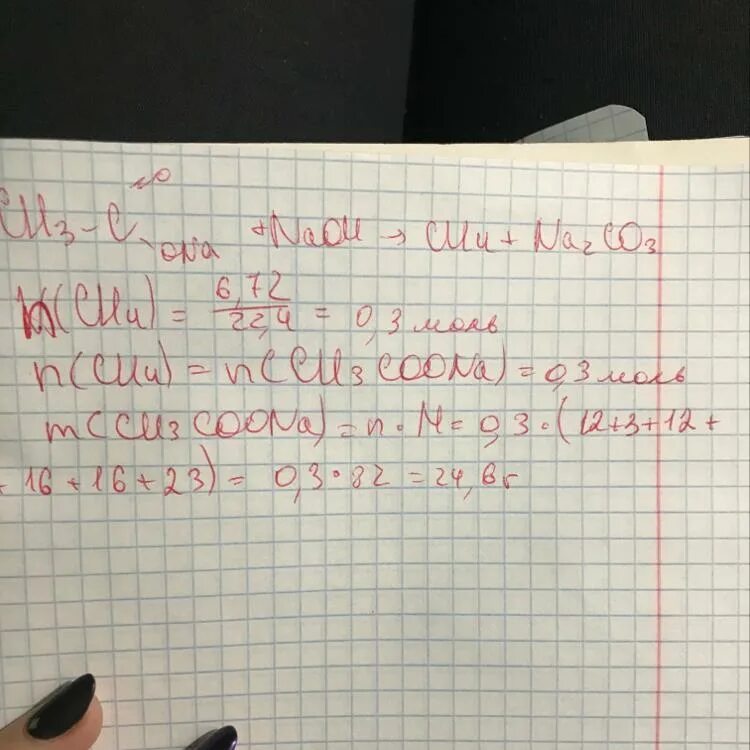 CH₃-C=O
ONa + NaOH → CH₄ + Na₂CO₃
n(CH₄) = 6,72/22,4 = 0,3 моль
n(CH₄) = n(CH₃COONa) = 0,3 моль
m(CH₃COONa) = n · M = 0,3 · (12+3+12+
+ 16 + 16 + 23) = 0,3 · 82 = 24,6 г